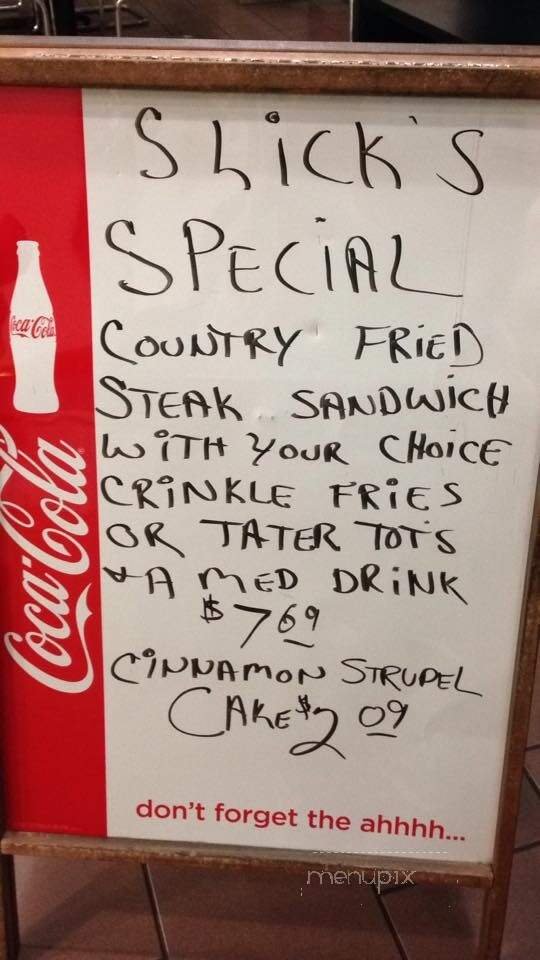 SLiCK'S
SPECiAL
COUNTRY FRiED
STEAK SANDWiCH
WiTH YOUR CHOiCE
CRiNKLE FRiES
OR TATER TOT'S
& A MED DRiNK
$7 69
CiNNAMON STRUPEL
CAKE $2 09
don't forget the ahhhh...
Coca-Cola
Coca-Cola
menupix